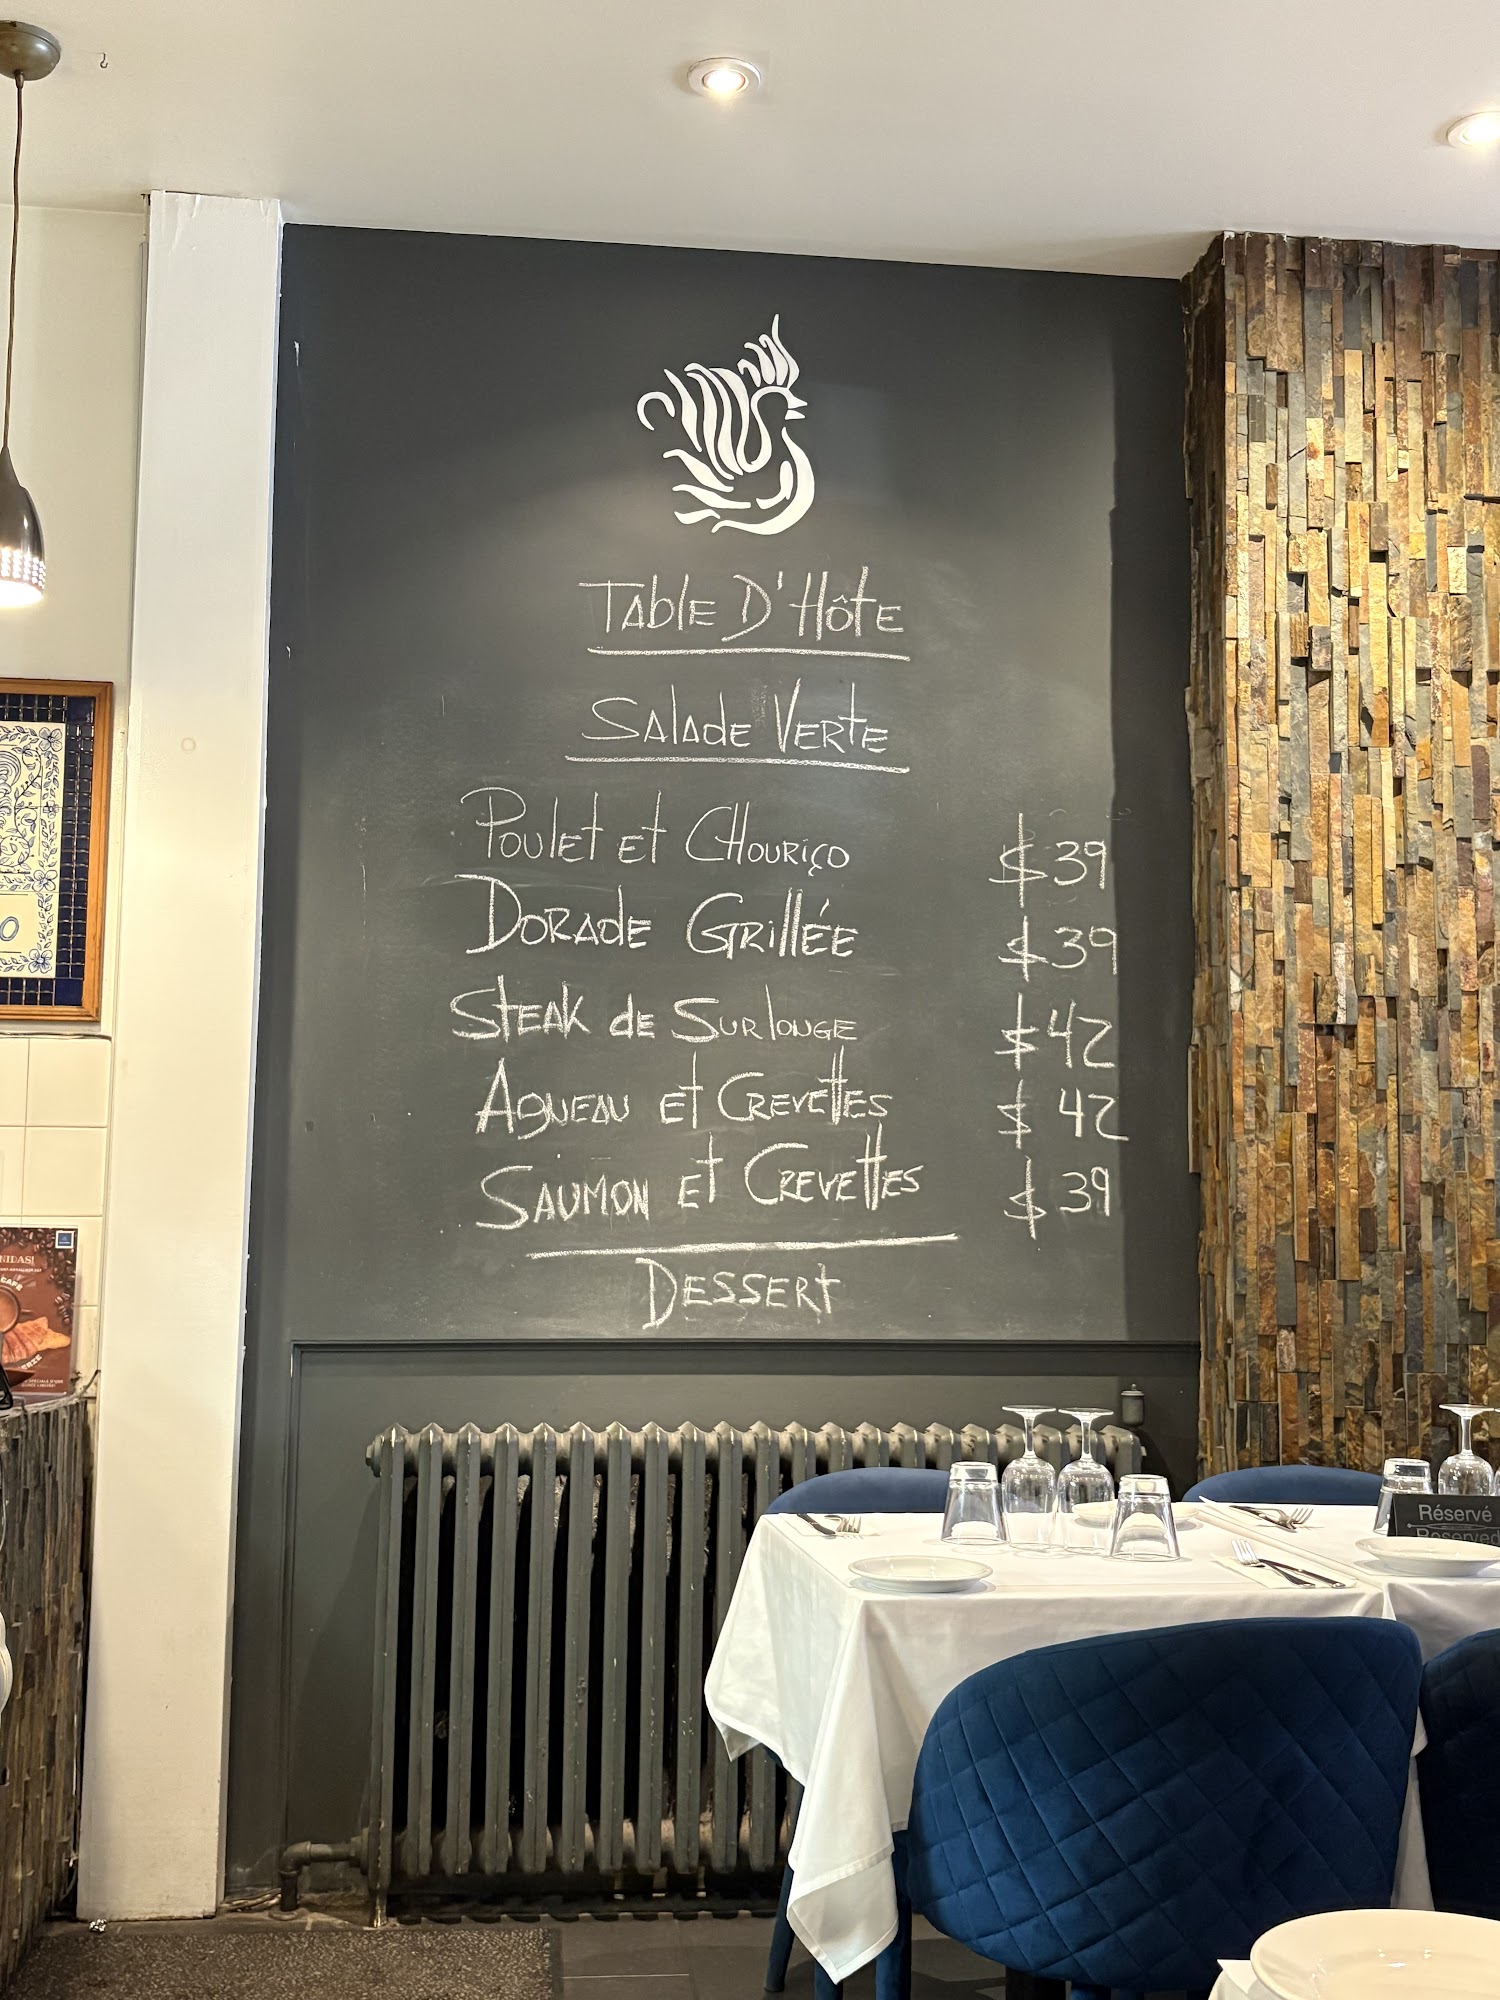 Table D'Hôte
Salade Verte
Poulet et Chouriço $39
Dorade Grillée $39
Steak de Surlonge $42
Agneau et Crevettes $42
Saumon et Crevettes $39
Dessert
Réservé
Reserved
NIDAS!
CAFÉ